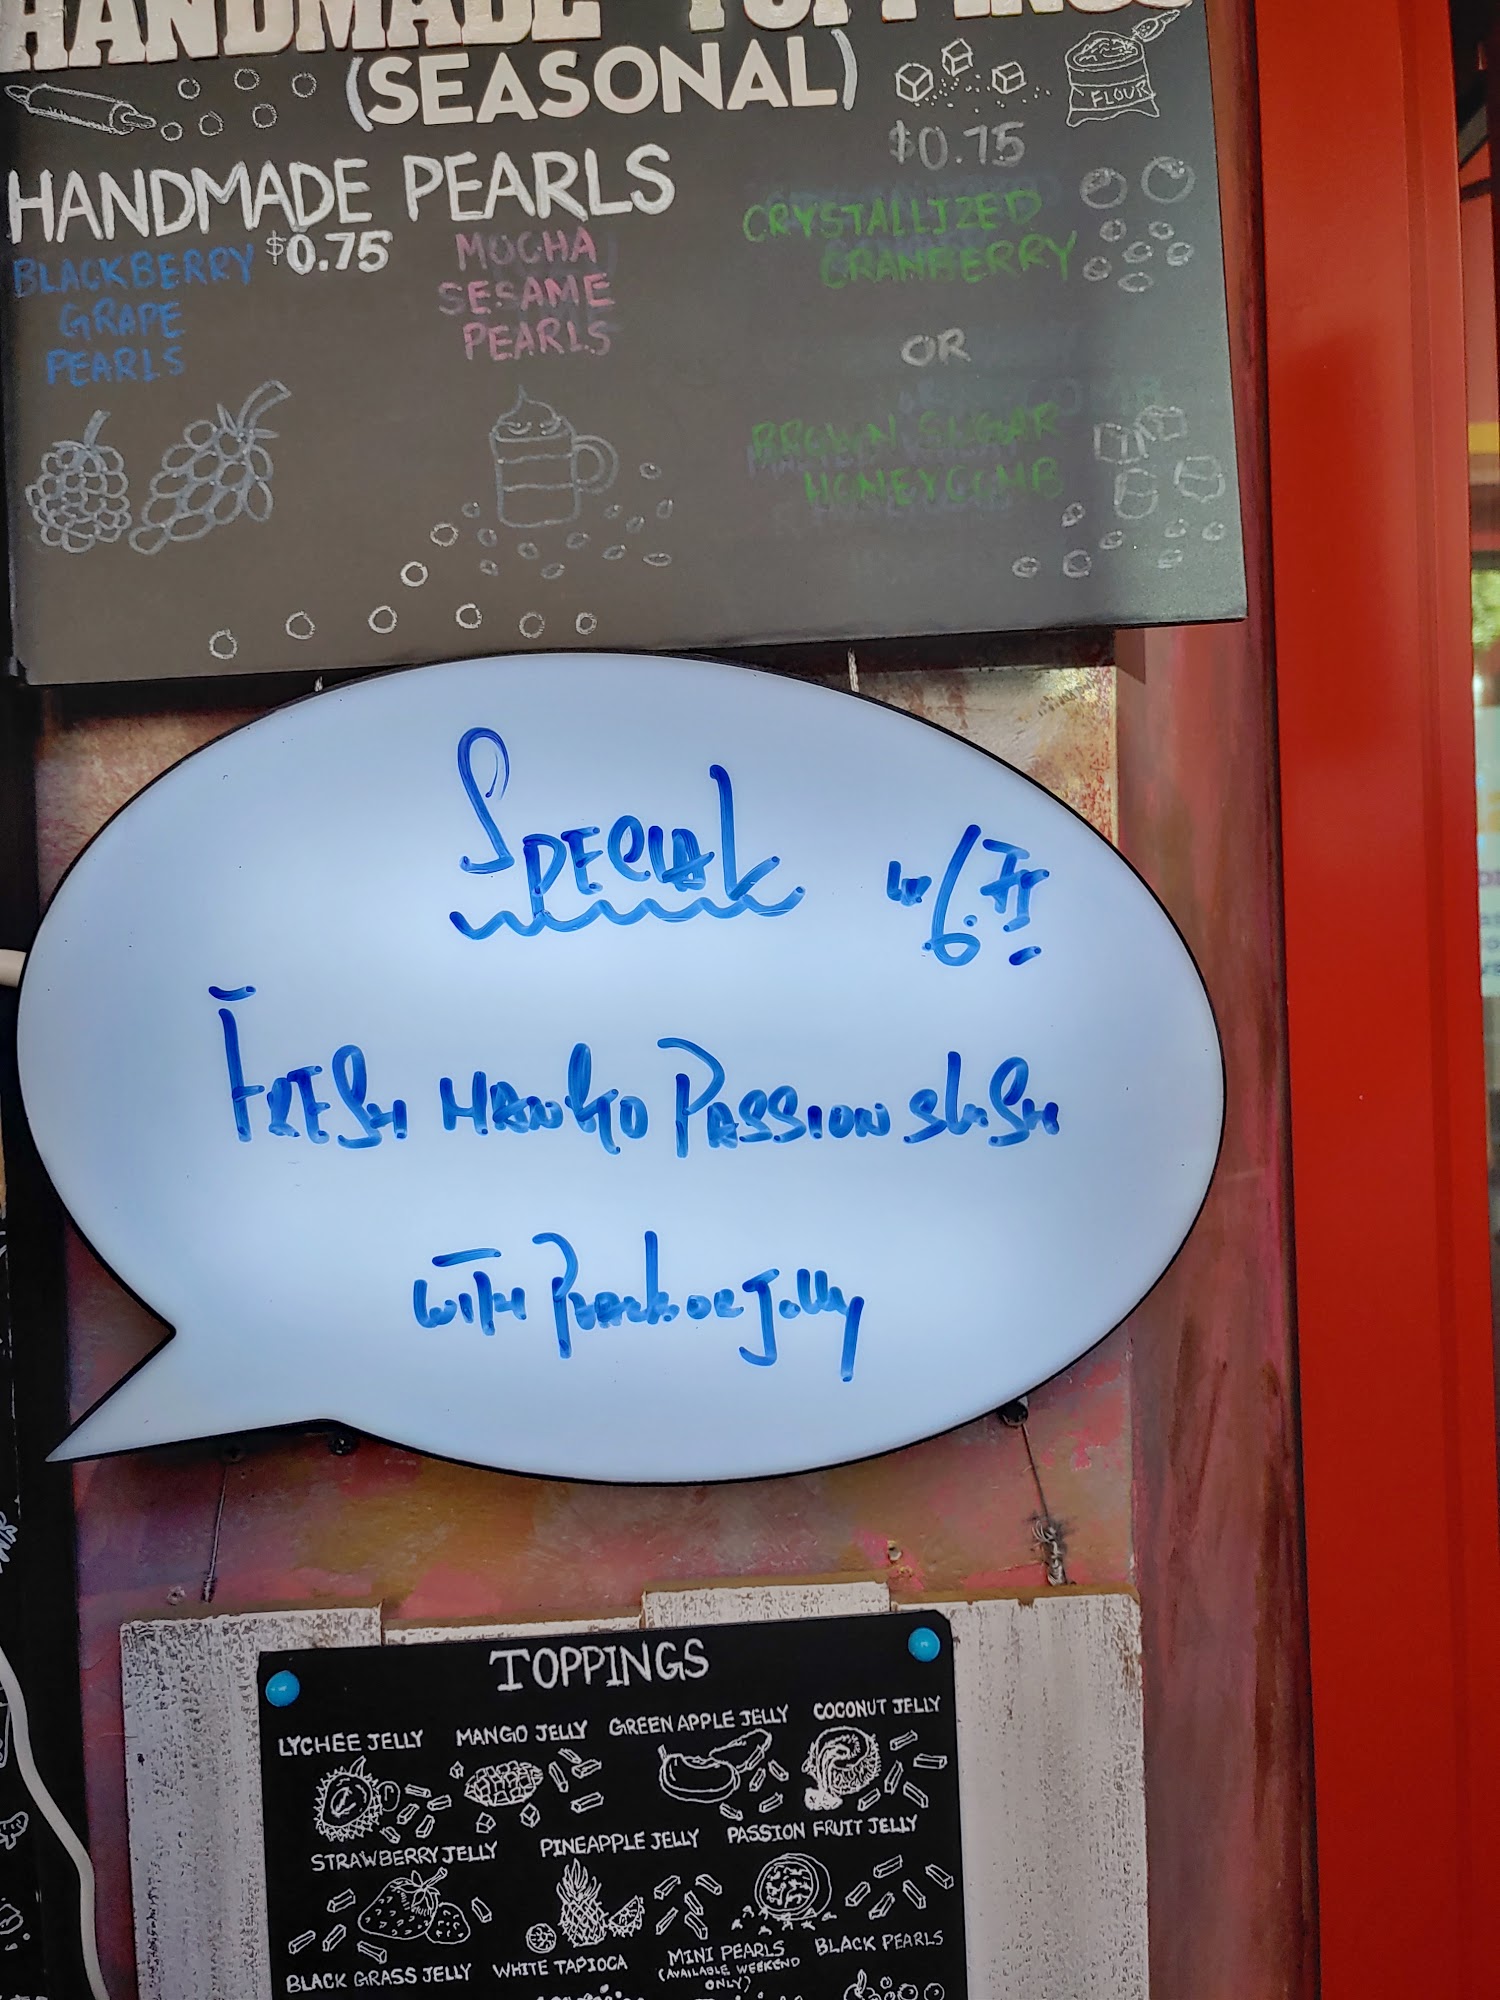 HANDMADE TOPPINGS
(SEASONAL)
FLOUR
HANDMADE PEARLS
$0.75
BLACKBERRY
GRAPE
PEARLS
MOCHA
SESAME
PEARLS
$0.75
CRYSTALLIZED
CRANBERRY
OR
BROWN SUGAR
HONEYCOMB
SPECIAL
FRESH MANGO PASSION SLUSH
WITH PEARL OR JELLY
TOPPINGS
LYCHEE JELLY MANGO JELLY GREEN APPLE JELLY COCONUT JELLY
STRAWBERRY JELLY PINEAPPLE JELLY PASSION FRUIT JELLY
BLACK GRASS JELLY WHITE TAPIOCA MINI PEARLS BLACK PEARLS
(AVAILABLE WEEKEND
ONLY)